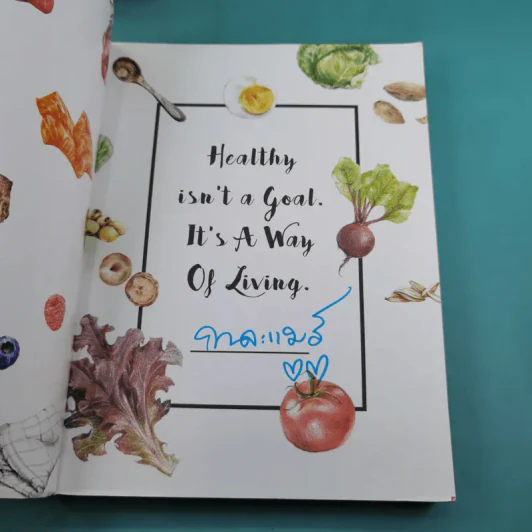 Healthy
isn't a Goal.
It's A Way
Of Living.
กาละแมร์